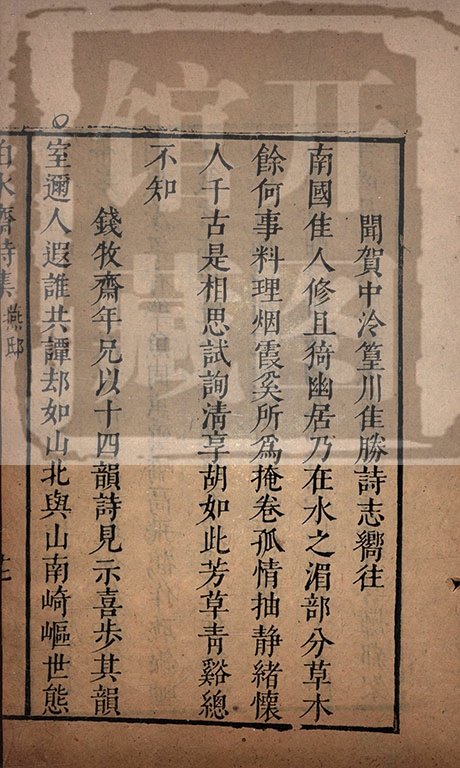 聞賀中泠篁川佳勝詩志嚮往
南國佳人修且猗幽居乃在水之湄部分草木
餘何事料理烟霞奚所爲掩卷孤情抽静緒懷
人千古是相思試詢清享胡如此芳草青谿總
不知
錢牧齋年兄以十四韻詩見示喜步其韻
室邇人遐誰共譚却如山北與山南崎嶇世態
白水齋詩集 燕邸
开图
馆藏